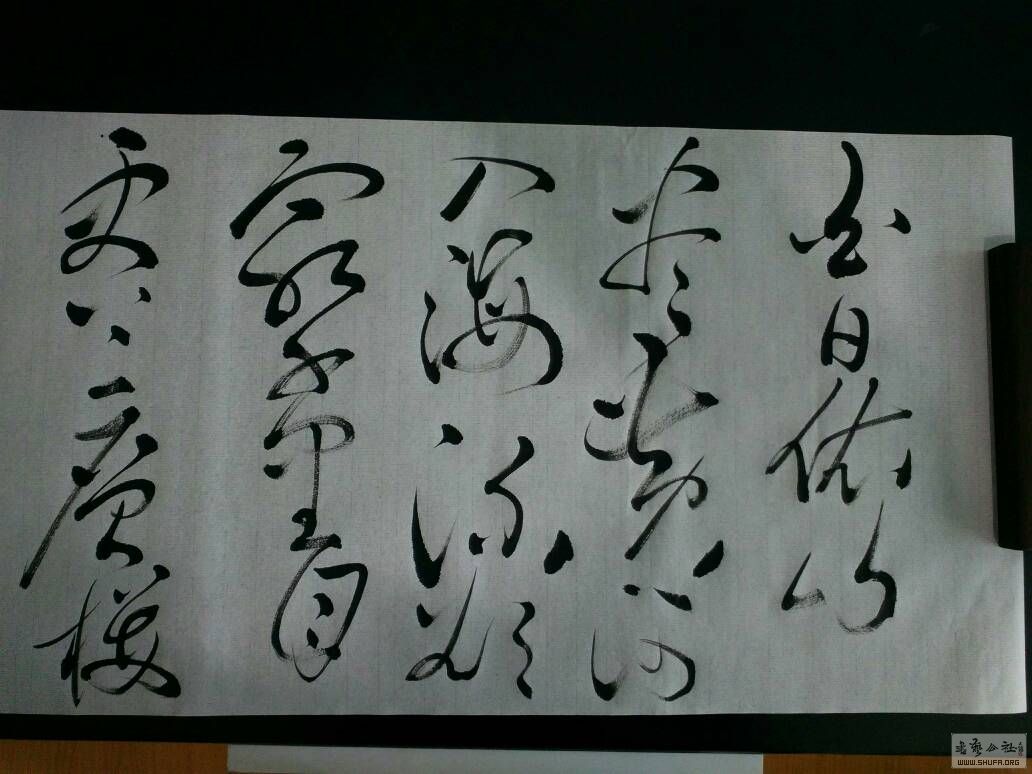 白日依山
盡黄河
入海流欲
窮千里目
更上一層樓
書藝公社
WWW.SHUFA.ORG